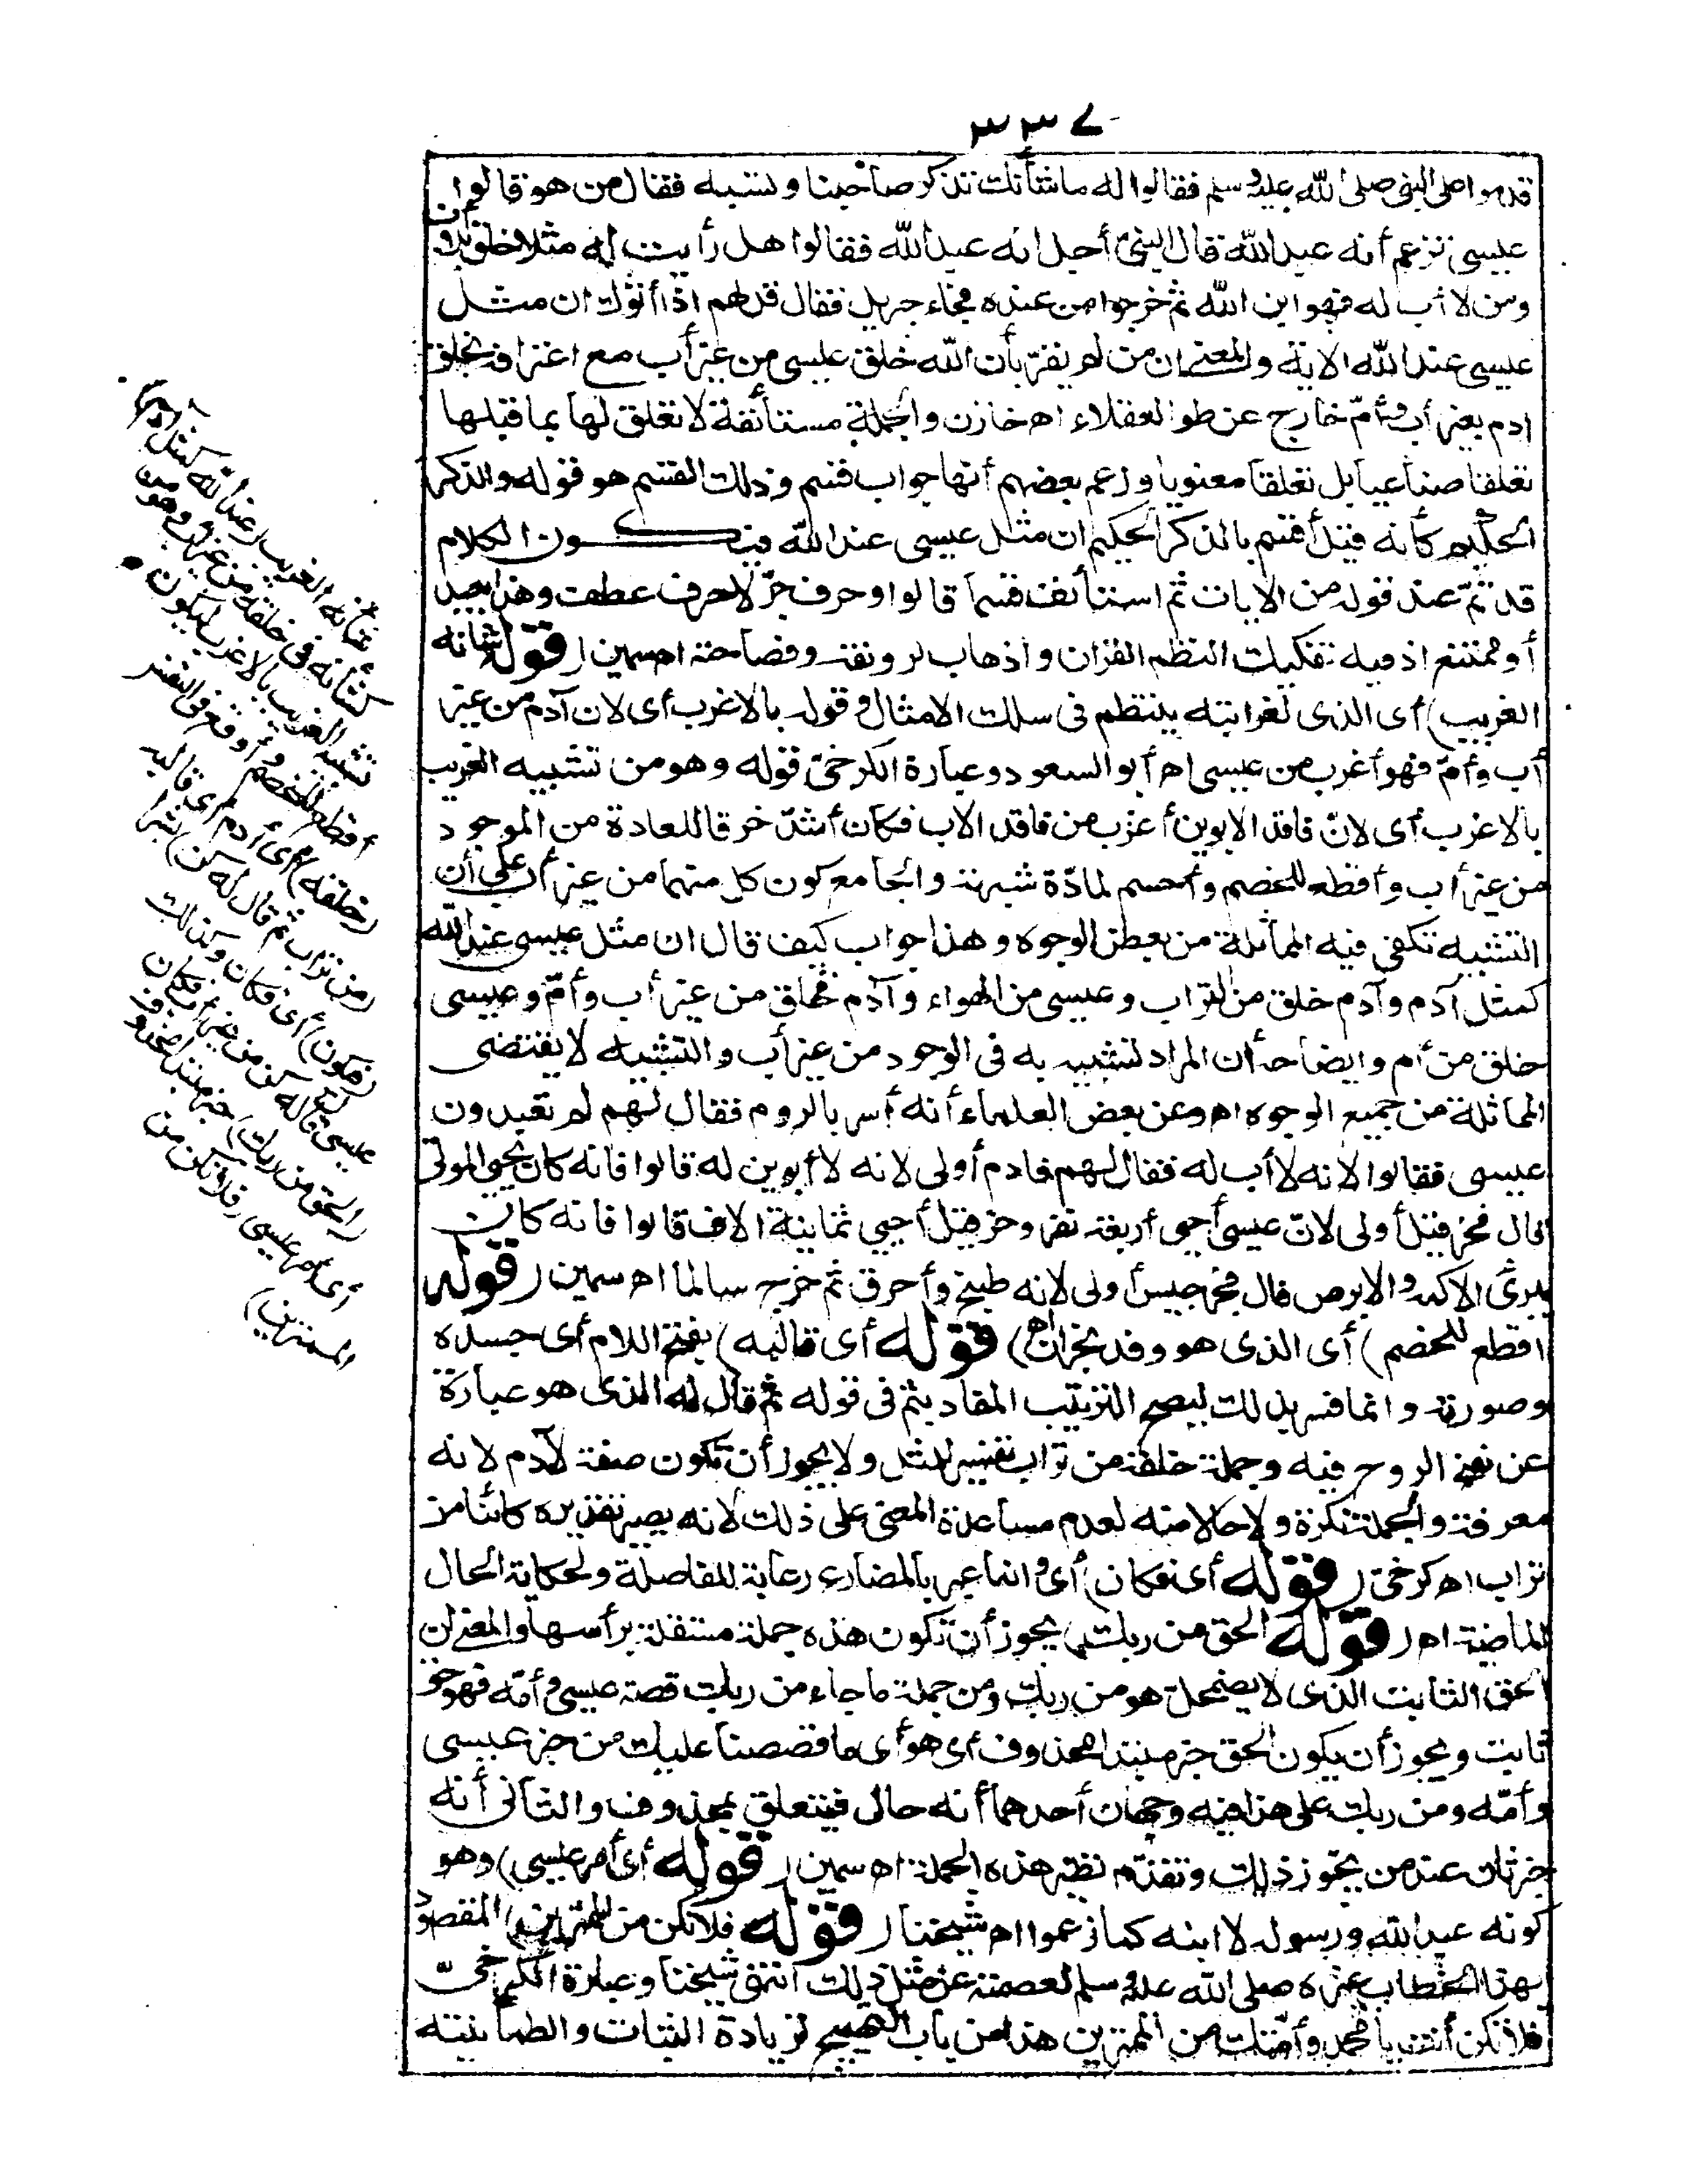 ٣٣٧
قدموا على النبى صلى الله عليه وسلم فقالوا له ما شأنك تذكر صاحبنا وتسبه فقال من هو قالوا
عيسى تزعم أنه عبد الله قال النبى أجل انه عبد الله فقالوا هل رأيت له مثلا خلق بدون
ومن لا أب له فهو ابن الله ثم خرجوا من عنده فجاء جبريل فقال قل لهم اذا أتوك ان مثل
عيسى عند الله الاية والمعنى ان من لم يقرّ بأن الله خلق عيسى من غير أب مع اعترافه بخلق
ادم بغير أب وأمّ خارج عن طور العقلاء اه خازن والجملة مستأنفة لا تعلق لها بما قبلها
تعلقا صناعيا بل تعلقا معنويا وزعم بعضهم أنها جواب قسم وذلك القسم هو قوله والذكر
الحكيم كأنه قيل أقسم بالذكر الحكيم ان مثل عيسى عند الله فيكون الكلام
قد تمّ عند قوله من الايات ثم استأنف قسما قالوا وحرف جرّ لا حرف عطف وهذا بعيد
أو ممتنع اذ فيه تفكيك النظم القران واذهاب لرونقه وفصاحته اه سمين (قوله شانه
الغريب) أى الذى لغرابته ينتظم فى سلك الامثال وقوله بالاغرب أى لان آدم من غير
أب وأمّ فهو أغرب من عيسى اه أبو السعود وعبارة الكرخىّ قوله وهو من تشبيه الغريب
بالاغرب أى لانّ فاقد الابوين أغرب من فاقد الاب فكان أشدّ خرقا للعادة من الموجود
من غير أب وأقطع للخصم وأحسم لمادّة شبهته والجامع كون كل منهما من غير أب على أن
التشبيه تكفى فيه المماثلة من بعض الوجوه وهذا جواب كيف قال ان مثل عيسى عند الله
كمثل آدم وآدم خلق من التراب وعيسى من الهواء وآدم خلق من غير أب وأمّ وعيسى
خلق من أم وايضاحه أن المراد تشبيهه به فى الوجود من غير أب والتشبيه لا يقتضى
المماثلة من جميع الوجوه اه وعن بعض العلماء أنه أسر بالروم فقال لهم لم تعبدون
عيسى فقالوا لانه لا أب له فقال لهم فادم أولى لانه لا أبوين له قالوا فانه كان يحيى الموتى
قال فحزقيل أولى لانّ عيسى أحيى أربعة نفر وحزقيل أحيى ثمانية الاف قالوا فانه كان
يبرئ الاكمه والابرص قال فجرجيس أولى لانه طبخ وأحرق ثم خرج سالما اه سمين (قوله
اقطع للخصم) أى الذى هو وفد نجران اه (قوله أى قالبه) بفتح اللام أى جسده
وصورته وانما فسر بذلك ليصح الترتيب المفاد بثم فى قوله ثم قال له الذى هو عبارة
عن نفخ الروح فيه وجملة خلقه من تراب تفسير للمثل ولا يجوز أن تكون صفة لآدم لانه
معرفة والجملة نكرة ولا حالا منه لعدم مساعدة المعنى على ذلك لانه يصير تقديره كائنا من
تراب اه كرخىّ (قوله أى فكان) أى وانما عبر بالمضارع رعاية للفاصلة ولحكاية الحال
الماضية اه (قوله الحق من ربك) يجوز أن تكون هذه جملة مستقلة برأسها والمعنى ان
الحق الثابت الذى لا يضمحلّ هو من ربك ومن جملة ما جاء من ربك قصة عيسى وأمّه فهو حق
ثابت ويجوز أن يكون الحق خبر مبتدا محذوف أى هو أى ما قصصنا عليك من خبر عيسى
وأمّه ومن ربك على هذا فيه وجهان أحدهما أنه حال فيتعلق بمحذوف والثانى أنه
خبر ثان عند من يجوّز ذلك وتقدّم نظير هذه الجملة اه سمين (قوله أى أمر عيسى) وهو
كونه عبد الله ورسوله لا ابنه كما زعموا اه شيخنا (قوله فلا تكن من الممترين) المقصود
بهذا الخطاب غيره صلى الله عليه وسلم لعصمته عن مثل ذلك انتهى شيخنا وعبارة الكرخىّ
فلا تكن أنت يا محمد وأمّتك من الممترين هذا من باب التهييج لزيادة الثبات والطمأنينة
شأنه الغريب (عند الله كمثل آدم)
كشأنه فى خلقه من غير أب وهو من
تشبيه الغريب بالاغرب ليكون
أقطع للخصم وأوقع فى النفس
(خلقه) أى أدم أى قالبه
(من تراب ثم قال له كن) بشرا
(فيكون) أى فكان وكذلك
عيسى قال له كن من غير أب فكان
(الحق من ربك) خبر مبتدا محذوف
أى أمر عيسى (فلا تكن من
الممترين)